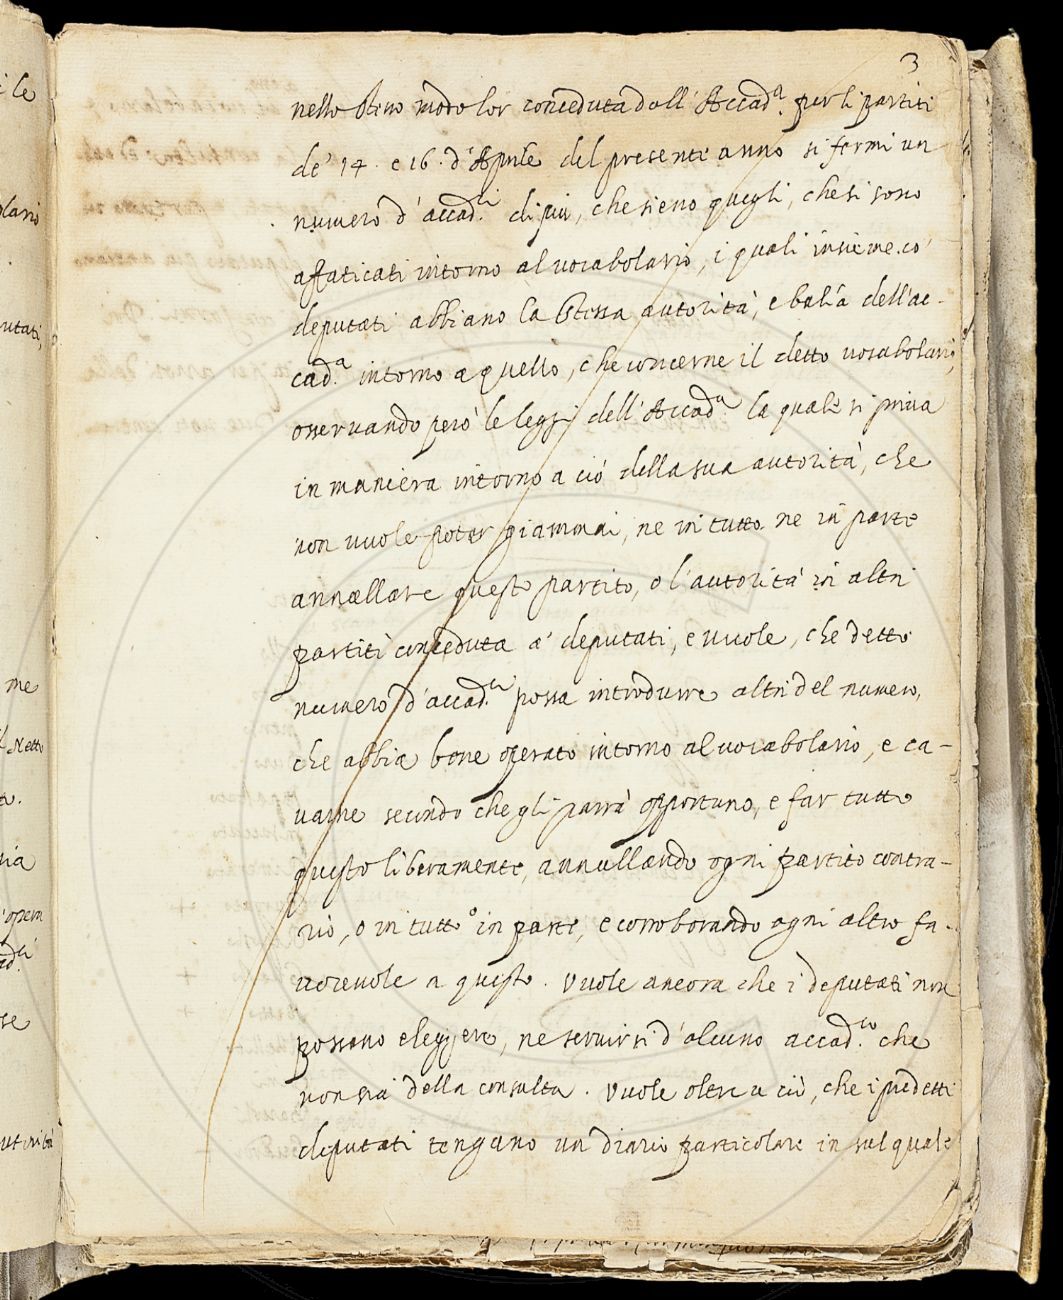 3
nello stesso modo lor conceduta dall'Accad.ª per li partiti
de' 14. e 16. d'Aprile del presente anno si fermi un
numero d'accad.ci di più, che sieno quegli, che si sono
affaticati intorno al vocabolario, i quali insieme co'
deputati abbiano la stessa autorità, e balìa dell'ac-
cad.ª intorno a quello, che concerne il detto vocabolario,
osservando però le leggi dell'Accad.ª la quale si priva
in maniera intorno a ciò della sua autorità, che
non vuole poter giammai, ne in tutto ne in parte
annullare questo partito, o l'autorità in altri
partiti conceduta a' deputati, e vuole, che detto
numero d'accad.ci possa introdurre altri del numero,
che abbia bene operato intorno al vocabolario, e ca-
varne secondo che gli parrà opportuno, e far tutto
questo liberamente, annullando ogni partito contra-
rio, o in tutto o in parte, e corroborando ogni altro fa-
vorevole a questo. Vuole ancora che i deputati non
possano eleggere, ne servirsi d'alcuno accad.co che
non sia della consulta. Vuole oltre a ciò, che i predetti
deputati tengano un diario particolare in sul quale